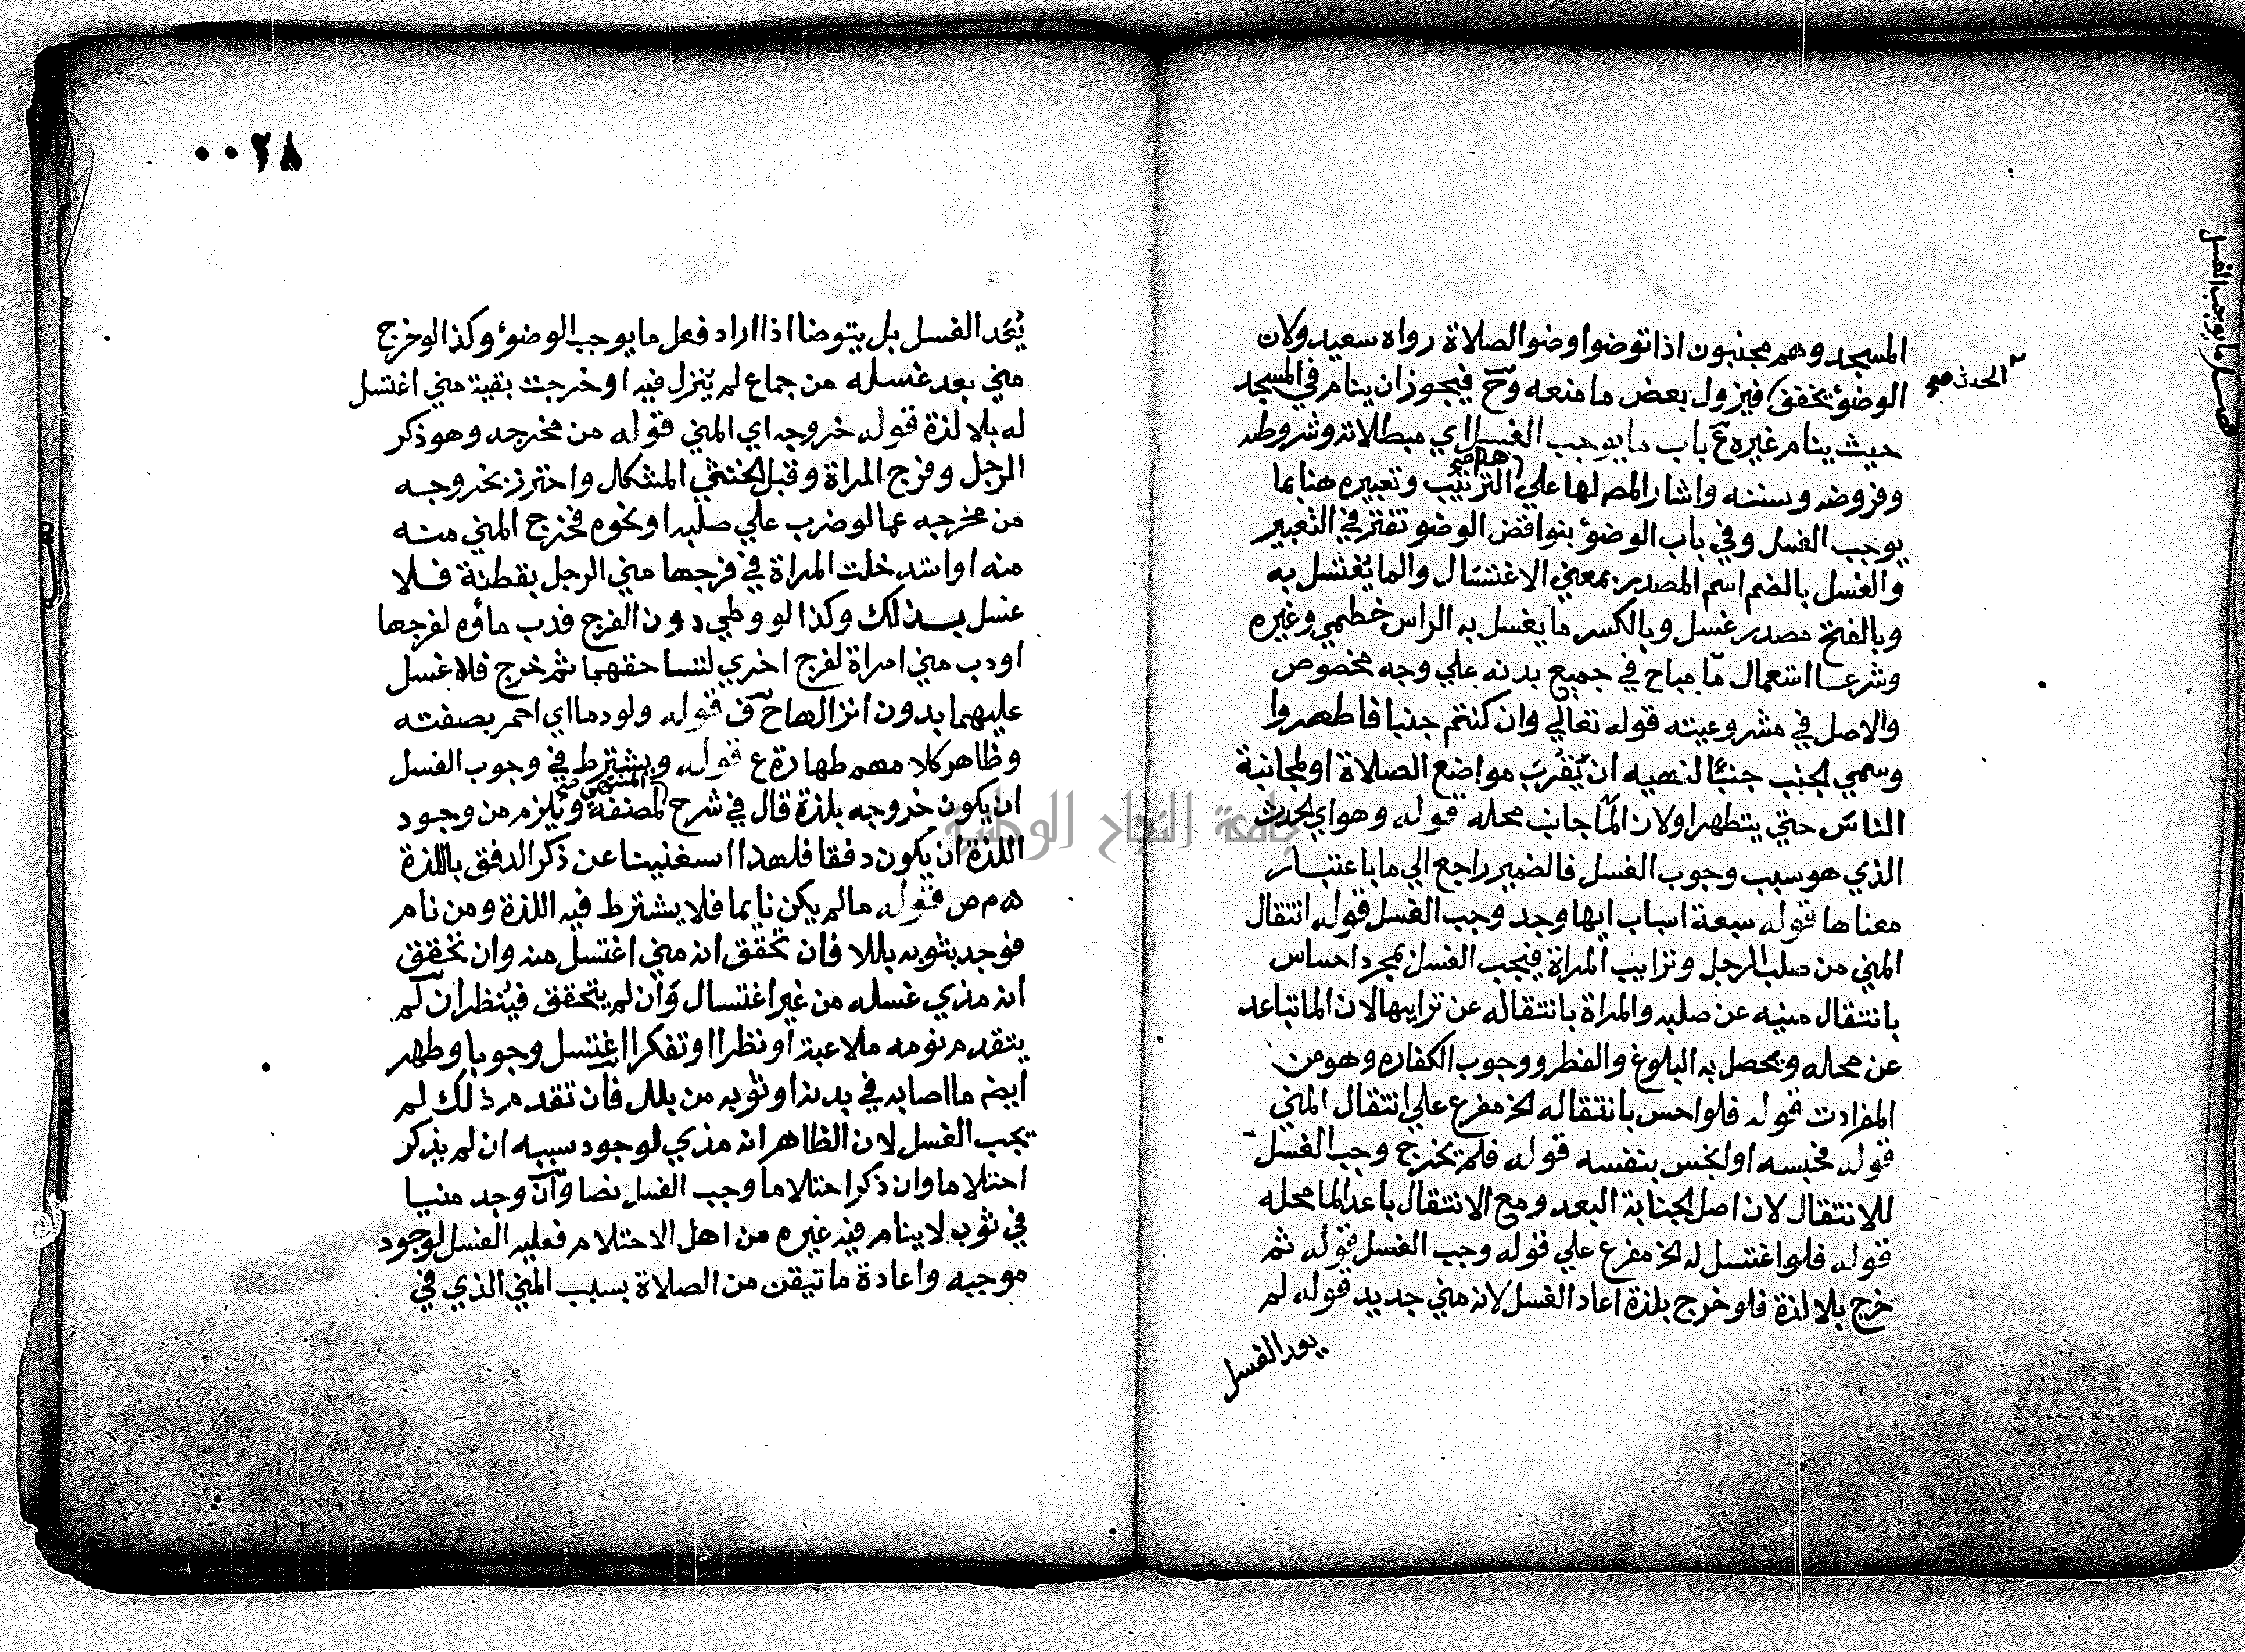 فصل ما يوجب الغسل
المسجد وهم مجنبون اذا توضوا وضو الصلاة رواه سعيد ولان
الحدث صح
الوضؤ يخفف فيزول بعض ما منعه وح فيجوز ان ينام في المسجد
حيث ينام غيره ع باب ما يوجب الغسل اي مبطلاته وشروطه
وفروضه وسننه واشار المص لها علي هذا صح الترتيب وتعبيره هنا بما
يوجب الغسل وفي باب الوضؤ بنواقض الوضو تفنن في التعبير
والغسل بالضم اسم المصدر بمعني الاغتسال والما يغتسل به
وبالفتح مصدر غسل وبالكسر ما يغسل به الراس خطمي وغيره
وشرعا استعمال ما مباح في جميع بدنه علي وجه مخصوص
والاصل في مشروعيته قوله تعالي وان كنتم جنبا فاطهروا
وسمي الجنب جنبا لنهيه ان يقرب مواضع الصلاة او لمجانبة
الناس حتي يتطهر او لان الما جانب محله قوله وهو اي الحدث
الذي هو سبب وجوب الغسل فالضمير راجع الي ما باعتبار
معناها قوله سبعة اسباب ايها وجد وجب الغسل قوله انتقال
المني من صلب الرجل وترايب المراة فيجب الغسل بمجرد احساس
بانتقال منيه عن صلبه والمراة بانتقاله عن ترايبها لان الما تباعد
عن محله ويحصل به البلوغ والفطر ووجوب الكفاره وهو من
المفردت قوله فلو احس بانتقاله الخ مفرع علي انتقال المني
قوله فحبسه او انحبس بنفسه قوله فلم يخرج وجب الغسل
للانتقال لان اصل الجنابة البعد ومع الانتقال باعد الما محله
قوله فلو اغتسل له الخ مفرع علي قوله وجب الغسل قوله ثم
خرج بلا لذة فلو خرج بلذة اعاد الغسل لانه مني جديد قوله لم
يعد الغسل
٠٠٢٨
يُعد الغسل بل يتوضا اذا اراد فعل ما يوجب الوضؤ وكذا لو خرج
مني بعد غسله من جماع لم ينزل فيه او خرجت بقية مني اغتسل
له بلا لذة قوله خروجه اي المني قوله من مخرجه وهو ذكر
الرجل وفرج المراة وقبل الخنثي المشكل واحترز بخروجه
من مخرجه عما لو ضرب علي صلبه او نحوه فخرج المني منه
منه او استدخلت المراة في فرجها مني الرجل بقطنة فلا
غسل بذلك وكذا لو وطي دون الفرج فدب ماؤه لفرجها
او دب مني امراة لفرج اخري لتساحقهما ثم خرج فلا غسل
عليهما بدون انزالها ح ف قوله ولو دما اي احمر بصفته
وظاهر كلامهم طهارة ع قوله ويشترط في وجوب الغسل
ان يكون خروجه بلذة قال في شرح المنتهي صح لمصنفه ويلزم من وجود
اللذة ان يكون دفقا فلهذا استغنينا عن ذكر الدفق باللذة
ه م ص قوله ما لم يكن نايما فلا يشترط فيه اللذة ومن نام
فوجد بثوبه بللا فان تحقق انه مني اغتسل منه وان تحقق
انه مذي غسله من غير اغتسال وان لم يتحقق فينظر ان لم
يتقدم نومه ملاعبة او نظرا او تفكرا اغتسل وجوبا وطهر
ايضم ما اصابه في بدنه او ثوبه من بلل فان تقدم ذلك لم
يجب الغسل لان الظاهر انه مذي لوجود سببه ان لم يذكر
احتلاما وان ذكر احتلاما وجب الغسل نصا وان وجد منيا
في ثوب لا ينام فيه غيره من اهل الاحتلام فعليه الغسل لوجود
موجبه واعادة ما تيقن من الصلاة بسبب المني الذي في
جامعة النجاح الوطنية